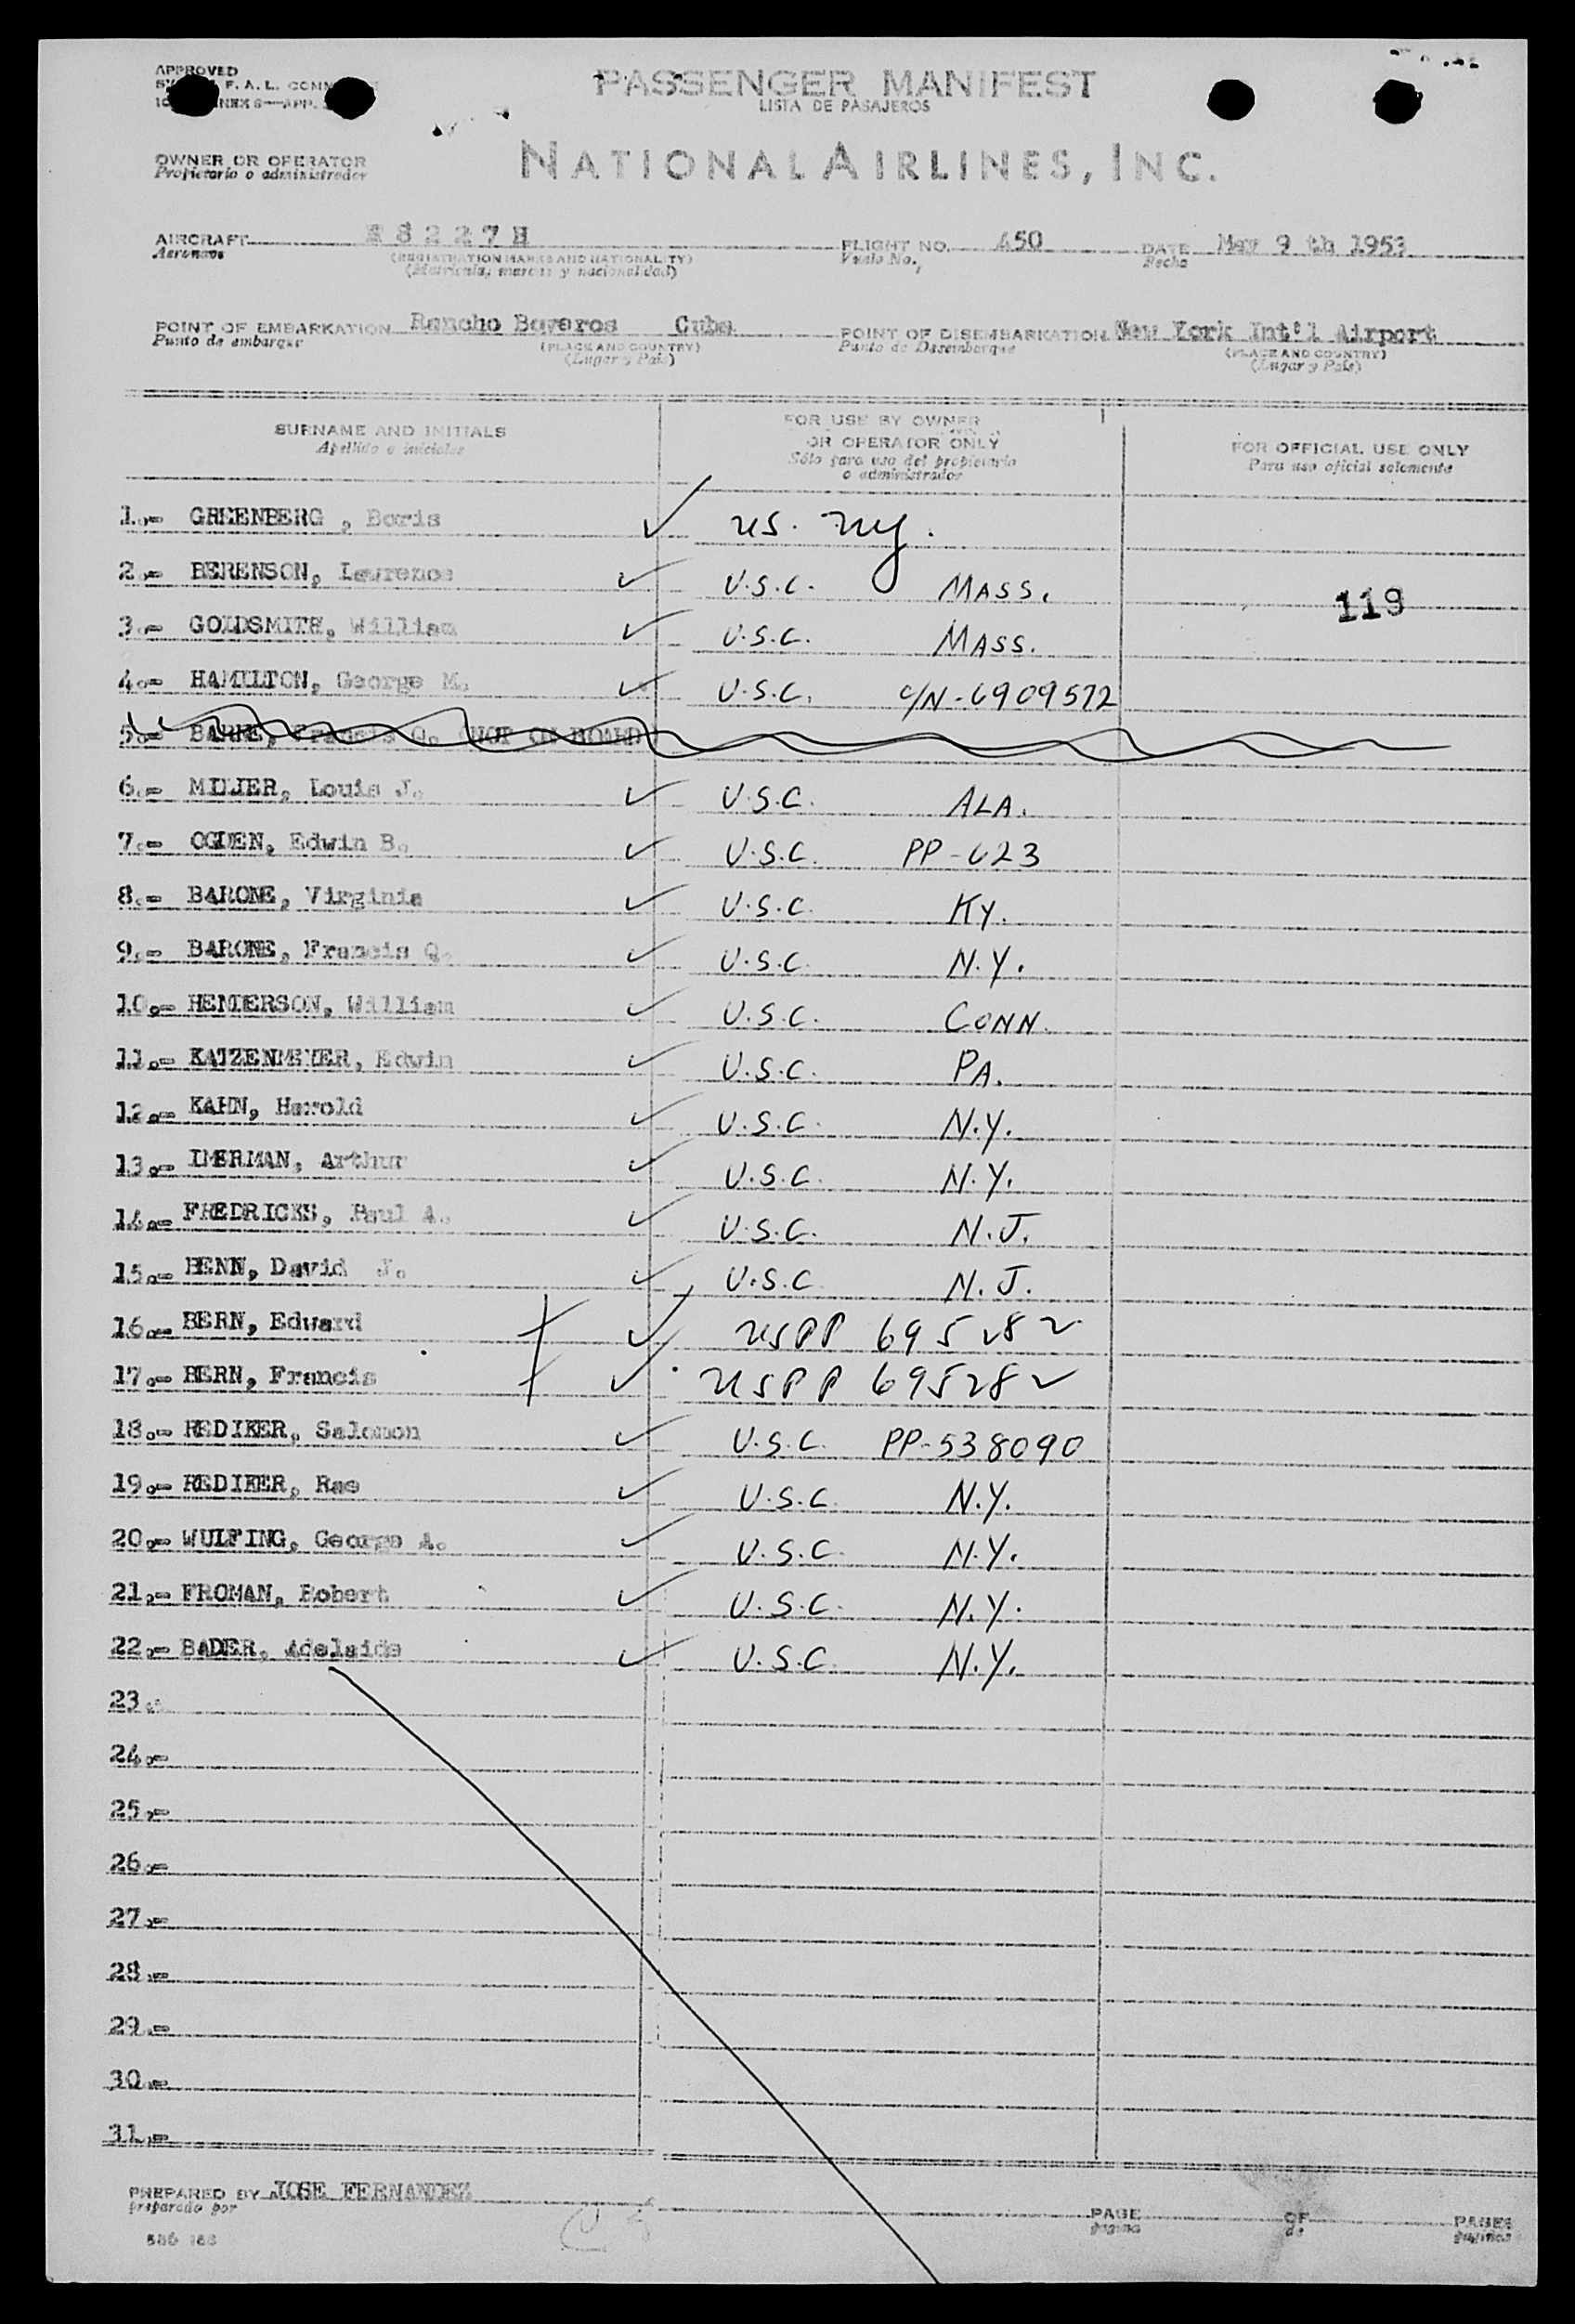 APPROVED
F. A. L. COMM
ANNEX 6—APP.
PASSENGER MANIFEST
LISTA DE PASAJEROS
OWNER OR OPERATOR
Propietario o administrador
NATIONAL AIRLINES, INC.
AIRCRAFT 8 2 2 7 H FLIGHT NO. 450 DATE May 9 th 1953
Aeronave (REGISTRATION MARKS AND NATIONALITY) Vuelo No. Fecha
(Matricula, marcas y nacionalidad)
POINT OF EMBARKATION Rancho Boyeros Cuba POINT OF DISEMBARKATION New York Int'l Airport
Punto de embarque (PLACE AND COUNTRY) Punto de Desembarque (PLACE AND COUNTRY)
(Lugar y País) (Lugar y País)
SURNAME AND INITIALS FOR USE BY OWNER OR OPERATOR ONLY FOR OFFICIAL USE ONLY
Apellido e iniciales Sólo para uso del propietario o administrador Para uso oficial solamente
1.- GREENBERG , Boris ✓ US. NY.
2.- BERENSON, Lawrence ✓ U.S.C. MASS. 119
3.- GOLDSMITH, William ✓ U.S.C. MASS.
4.- HAMILTON, George M. ✓ U.S.C. C/N-6909572
5.- Francis Q. (NOT ON BOARD)
6.- MILLER, Louis J. ✓ U.S.C. ALA.
7.- OGDEN, Edwin B. ✓ U.S.C. PP-623
8.- BARONE, Virginia ✓ U.S.C. KY.
9.- BARONE, Francis Q. ✓ U.S.C. N.Y.
10.- HENDERSON, William ✓ U.S.C. CONN.
11.- KATZENMEYER, Edwin ✓ U.S.C. PA.
12.- KAHN, Harold ✓ U.S.C. N.Y.
13.- IMERMAN, Arthur ✓ U.S.C. N.Y.
14.- FREDRICKS, Paul A. ✓ U.S.C. N.J.
15.- BENN, David J. ✓ U.S.C. N.J.
16.- BERN, Edward ✓ USPP 695282
17.- BERN, Francis ✓ USPP 695282
18.- REDIKER, Salomon ✓ U.S.C. PP-538090
19.- REDIKER, Rae ✓ U.S.C. N.Y.
20.- WULFING, George A. ✓ U.S.C. N.Y.
21.- FROMAN, Robert ✓ U.S.C. N.Y.
22.- BADER, Adelaide ✓ U.S.C. N.Y.
23.-
24.-
25.-
26.-
27.-
28.-
29.-
30.-
31.-
PREPARED BY JOSE FERNANDEZ PAGE OF PAGES
preparado por página de páginas